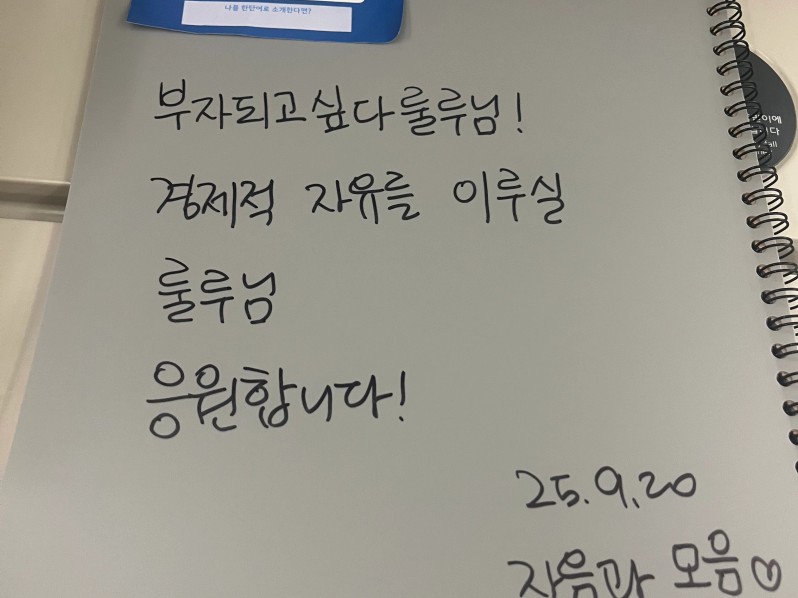 나를 한단어로 소개한다면?
부자되고싶다룰루님!
경제적 자유를 이루실
룰루님
응원합니다!
25.9.20
자음과 모음♡